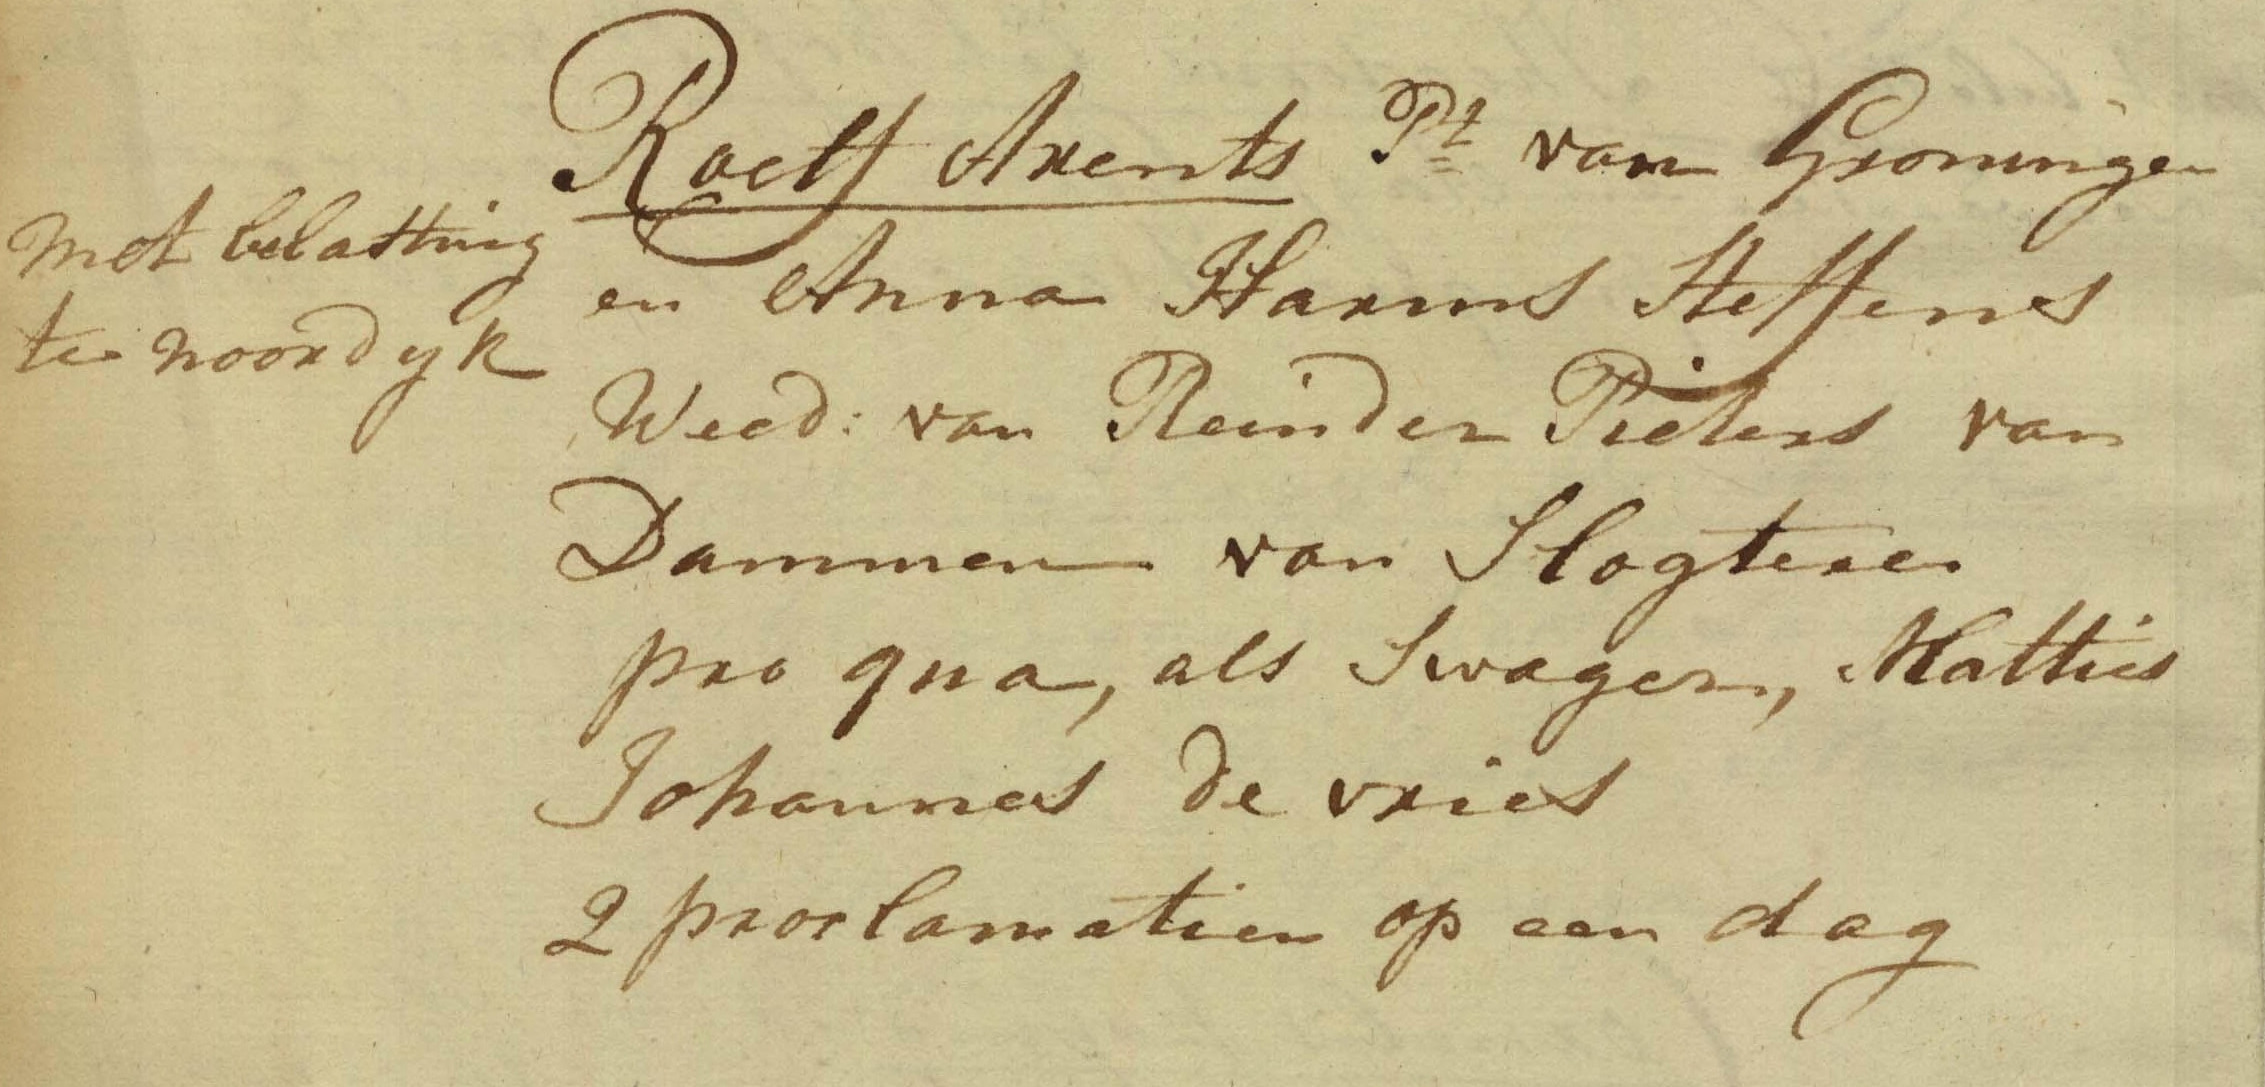 Roelf Arents Pt van Groningen
met belasting
te noordyk
en Anna Harms Steffens
Weed: van Reinder Pieters van
Dammen van Slogteren
pro qua, als Swager, Matties
Johannes de vries
2 proclamatien op een dag